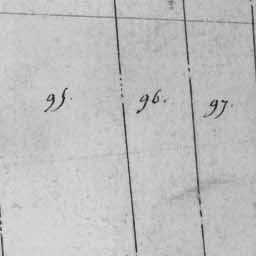 95. 96. 97.